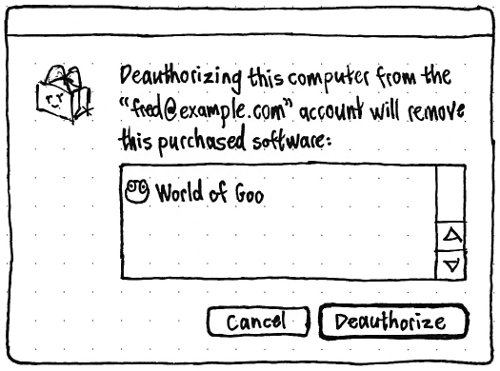 Deauthorizing this computer from the
“fred@example.com” account will remove
this purchased software:
World of Goo
Cancel
Deauthorize